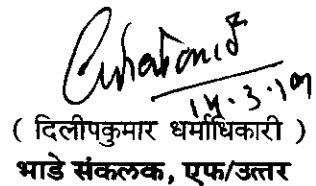 ( दिलीपकुमार धर्माधिकारी )
भाडे संकलक, एफ/उत्तर